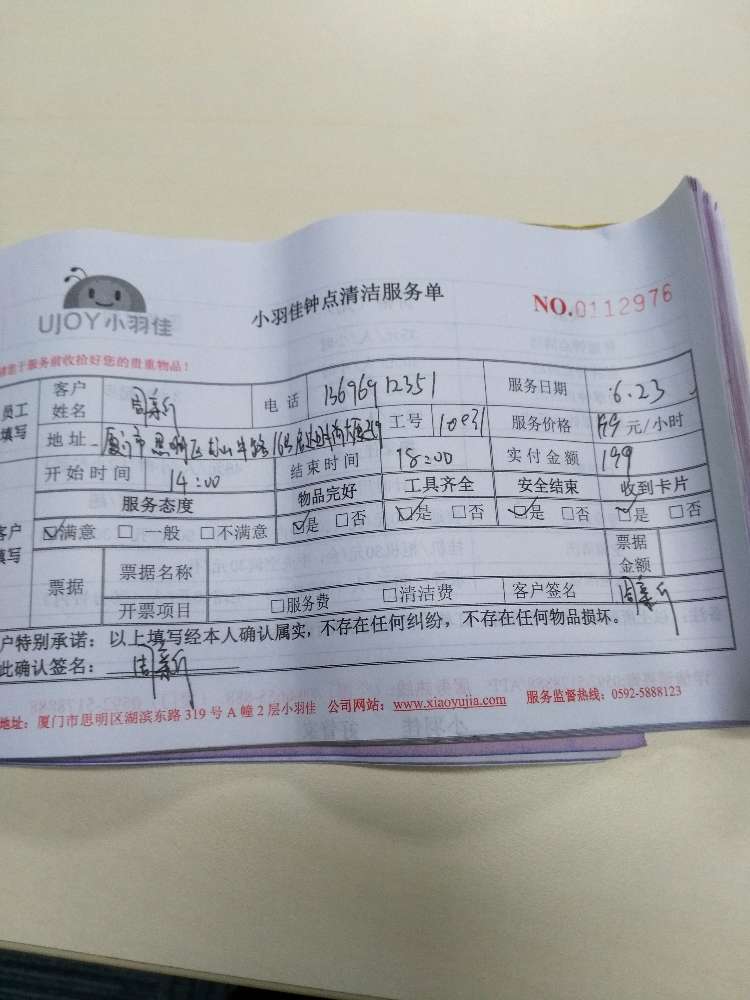 UJOY小羽佳
小羽佳钟点清洁服务单
NO.0112976
于服务前收拾好您的贵重物品！
员工填写
客户姓名 周 电话 13696912351 服务日期 6.23
地址 厦门市思明区 工号 服务价格 元/小时
开始时间 14:00 结束时间 18:00 实付金额 199
服务态度 物品完好 工具齐全 安全结束 收到卡片
客户填写
☑满意 □一般 □不满意 ☑是 □否 ☑是 □否 ☑是 □否 ☑是 □否
票据 票据名称 票据金额
开票项目 □服务费 □清洁费 客户签名 周
户特别承诺：以上填写经本人确认属实，不存在任何纠纷，不存在任何物品损坏。
此确认签名： 周
地址：厦门市思明区湖滨东路 319 号 A 幢 2 层小羽佳 公司网站：www.xiaoyujia.com 服务监督热线：0592-5888123